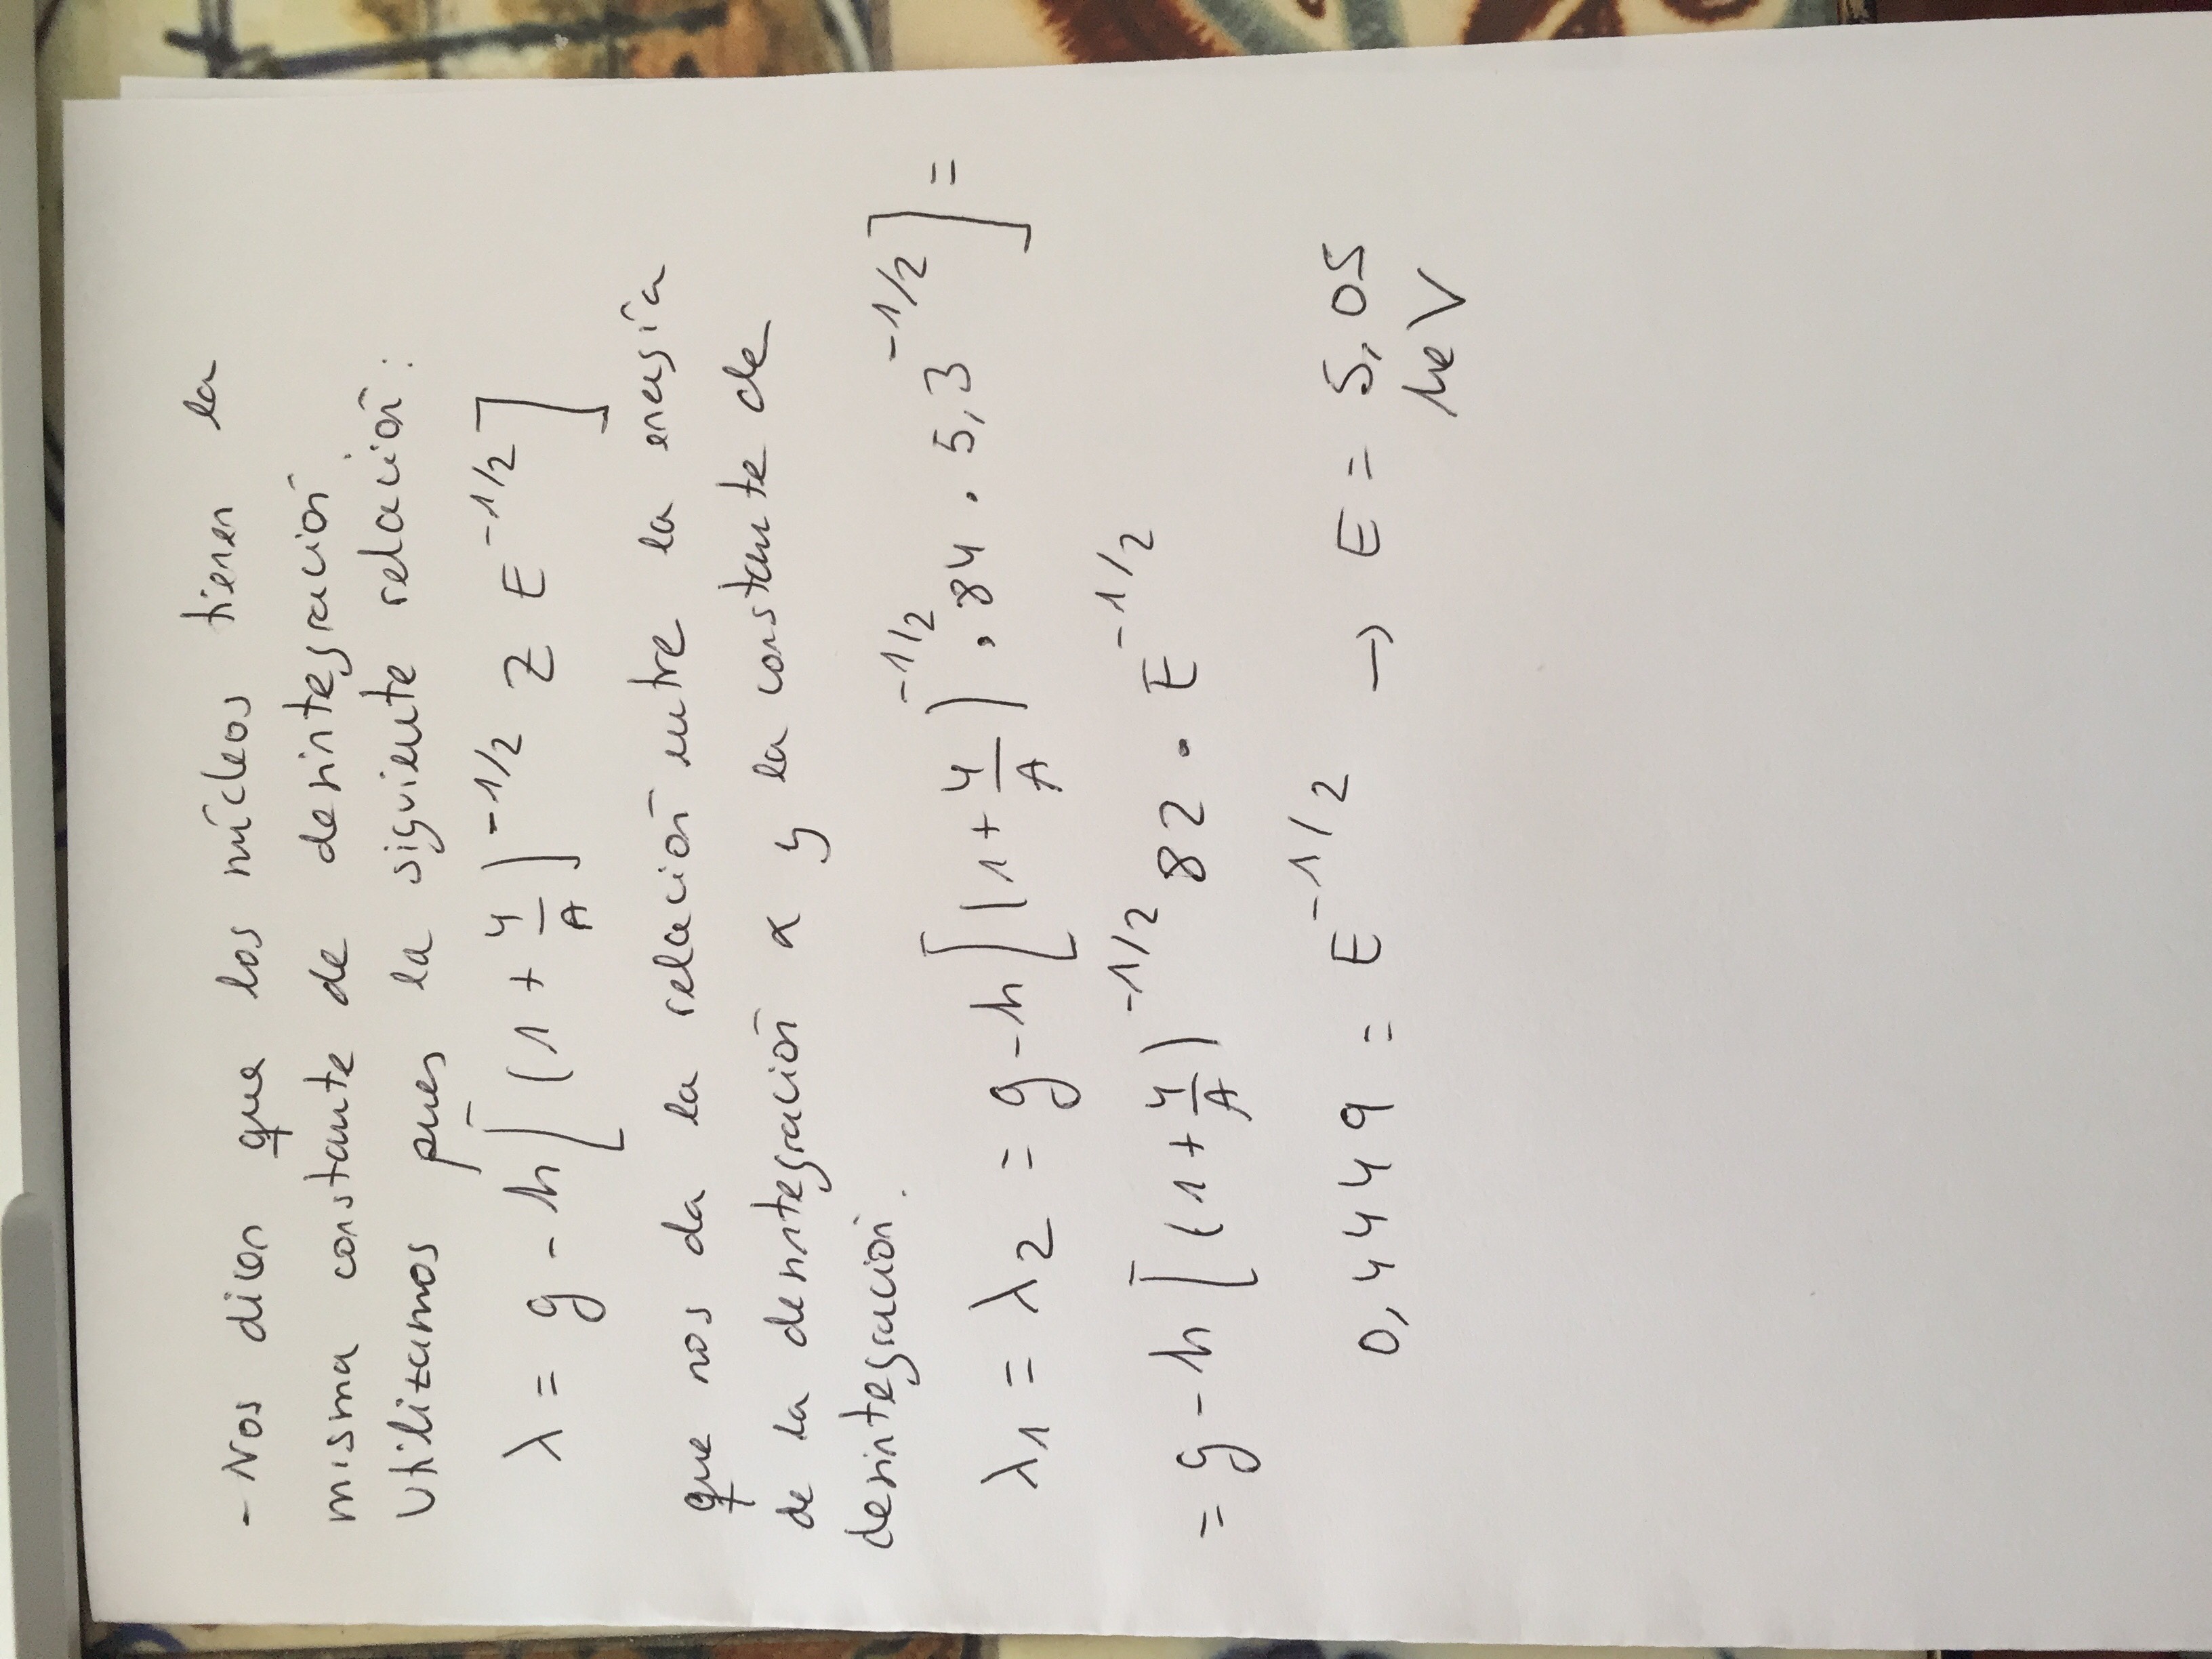 - Nos dicen que los núcleos tienen la
misma constante de desintegración.
Utilizamos pues la siguiente relación:
λ = g - h [ (1 + 4/A)^{-1/2} Z E^{-1/2} ]
que nos da la relación entre la energía
de la desintegración α y la constante de
desintegración.
λ1 = λ2 = g - h [ (1 + 4/A)^{-1/2} . 84 . 5,3^{-1/2} ] =
= g - h [ (1 + 4/A)^{-1/2} 82 . E^{-1/2}
0,4449 = E^{-1/2} → E = 5,05
MeV